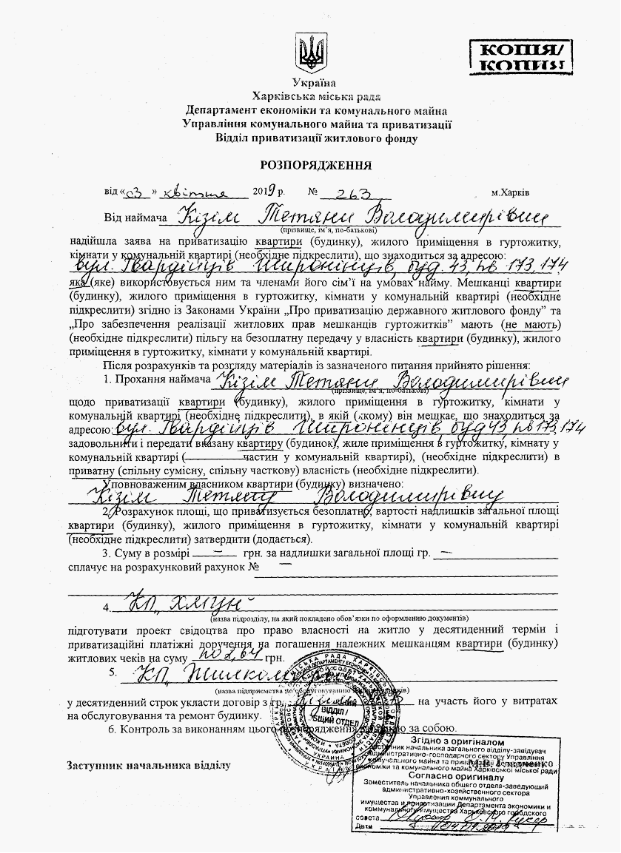 КОПІЯ/
КОПИЯ
Україна
Харківська міська рада
Департамент економіки та комунального майна
Управління комунального майна та приватизації
Відділ приватизації житлового фонду
РОЗПОРЯДЖЕННЯ
від «03» квітня 2019 р. № 263 м.Харків
Від наймача Кізім Тетяни Володимирівни
(прізвище, ім’я, по-батькові)
надійшла заява на приватизацію квартири (будинку), жилого приміщення в гуртожитку,
кімнати у комунальній квартирі (необхідне підкреслити), що знаходиться за адресою:
вул. Гвардійців Широнінців буд. 43, кв 173, 174
яка (яке) використовується ним та членами його сім’ї на умовах найму. Мешканці квартири
(будинку), жилого приміщення в гуртожитку, кімнати у комунальній квартирі (необхідне
підкреслити) згідно із Законами України „Про приватизацію державного житлового фонду” та
„Про забезпечення реалізації житлових прав мешканців гуртожитків” мають (не мають)
(необхідне підкреслити) пільгу на безоплатну передачу у власність квартири (будинку), жилого
приміщення в гуртожитку, кімнати у комунальній квартирі.
Після розрахунків та розгляду матеріалів із зазначеного питання прийнято рішення:
1. Прохання наймача Кізім Тетяни Володимирівни
(прізвище, ім’я, по-батькові)
щодо приватизації квартири (будинку), жилого приміщення в гуртожитку, кімнати у
комунальній квартирі (необхідне підкреслити), в якій (якому) він мешкає, що знаходиться за
адресою: вул. Гвардійців Широнінців буд 43 кв 173, 174
задовольнити і передати вказану квартиру (будинок), жиле приміщення в гуртожитку, кімнату у
комунальній квартирі ( частин у комунальній квартирі), (необхідне підкреслити) в
приватну (спільну сумісну, спільну часткову) власність (необхідне підкреслити).
Уповноваженим власником квартири (будинку) визначено:
Кізім Тетяну Володимирівну
2. Розрахунок площі, що приватизується безоплатно, вартості надлишків загальної площі
квартири (будинку), жилого приміщення в гуртожитку, кімнати у комунальній квартирі
(необхідне підкреслити) затвердити (додається).
3. Суму в розмірі — грн. за надлишки загальної площі гр. —
сплачує на розрахунковий рахунок № —
4. КП
(назва підрозділу, на який покладено обов’язки по оформленню документів)
підготувати проект свідоцтва про право власності на житло у десятиденний термін і
приватизаційні платіжні доручення на погашення належних мешканцям квартири (будинку)
житлових чеків на суму грн.
5. КП
(назва підприємства по обслуговуванню
у десятиденний строк укласти договір з гр. на участь його у витратах
на обслуговування та ремонт будинку.
6. Контроль за виконанням цього розпорядження за собою.
Заступник начальника відділу
Згідно з оригіналом
Заступник начальника загального відділу-завідувач
адміністративно-господарського сектору Управління
комунального майна та приватизації Департаменту
економіки та комунального майна Харківської міської ради
Согласно оригиналу
Заместитель начальника общего отдела-заведующий
административно-хозяйственного сектора
Управления коммунального
имущества и приватизации Департамента экономики и
коммунального имущества Харьковского городского
совета
Дата